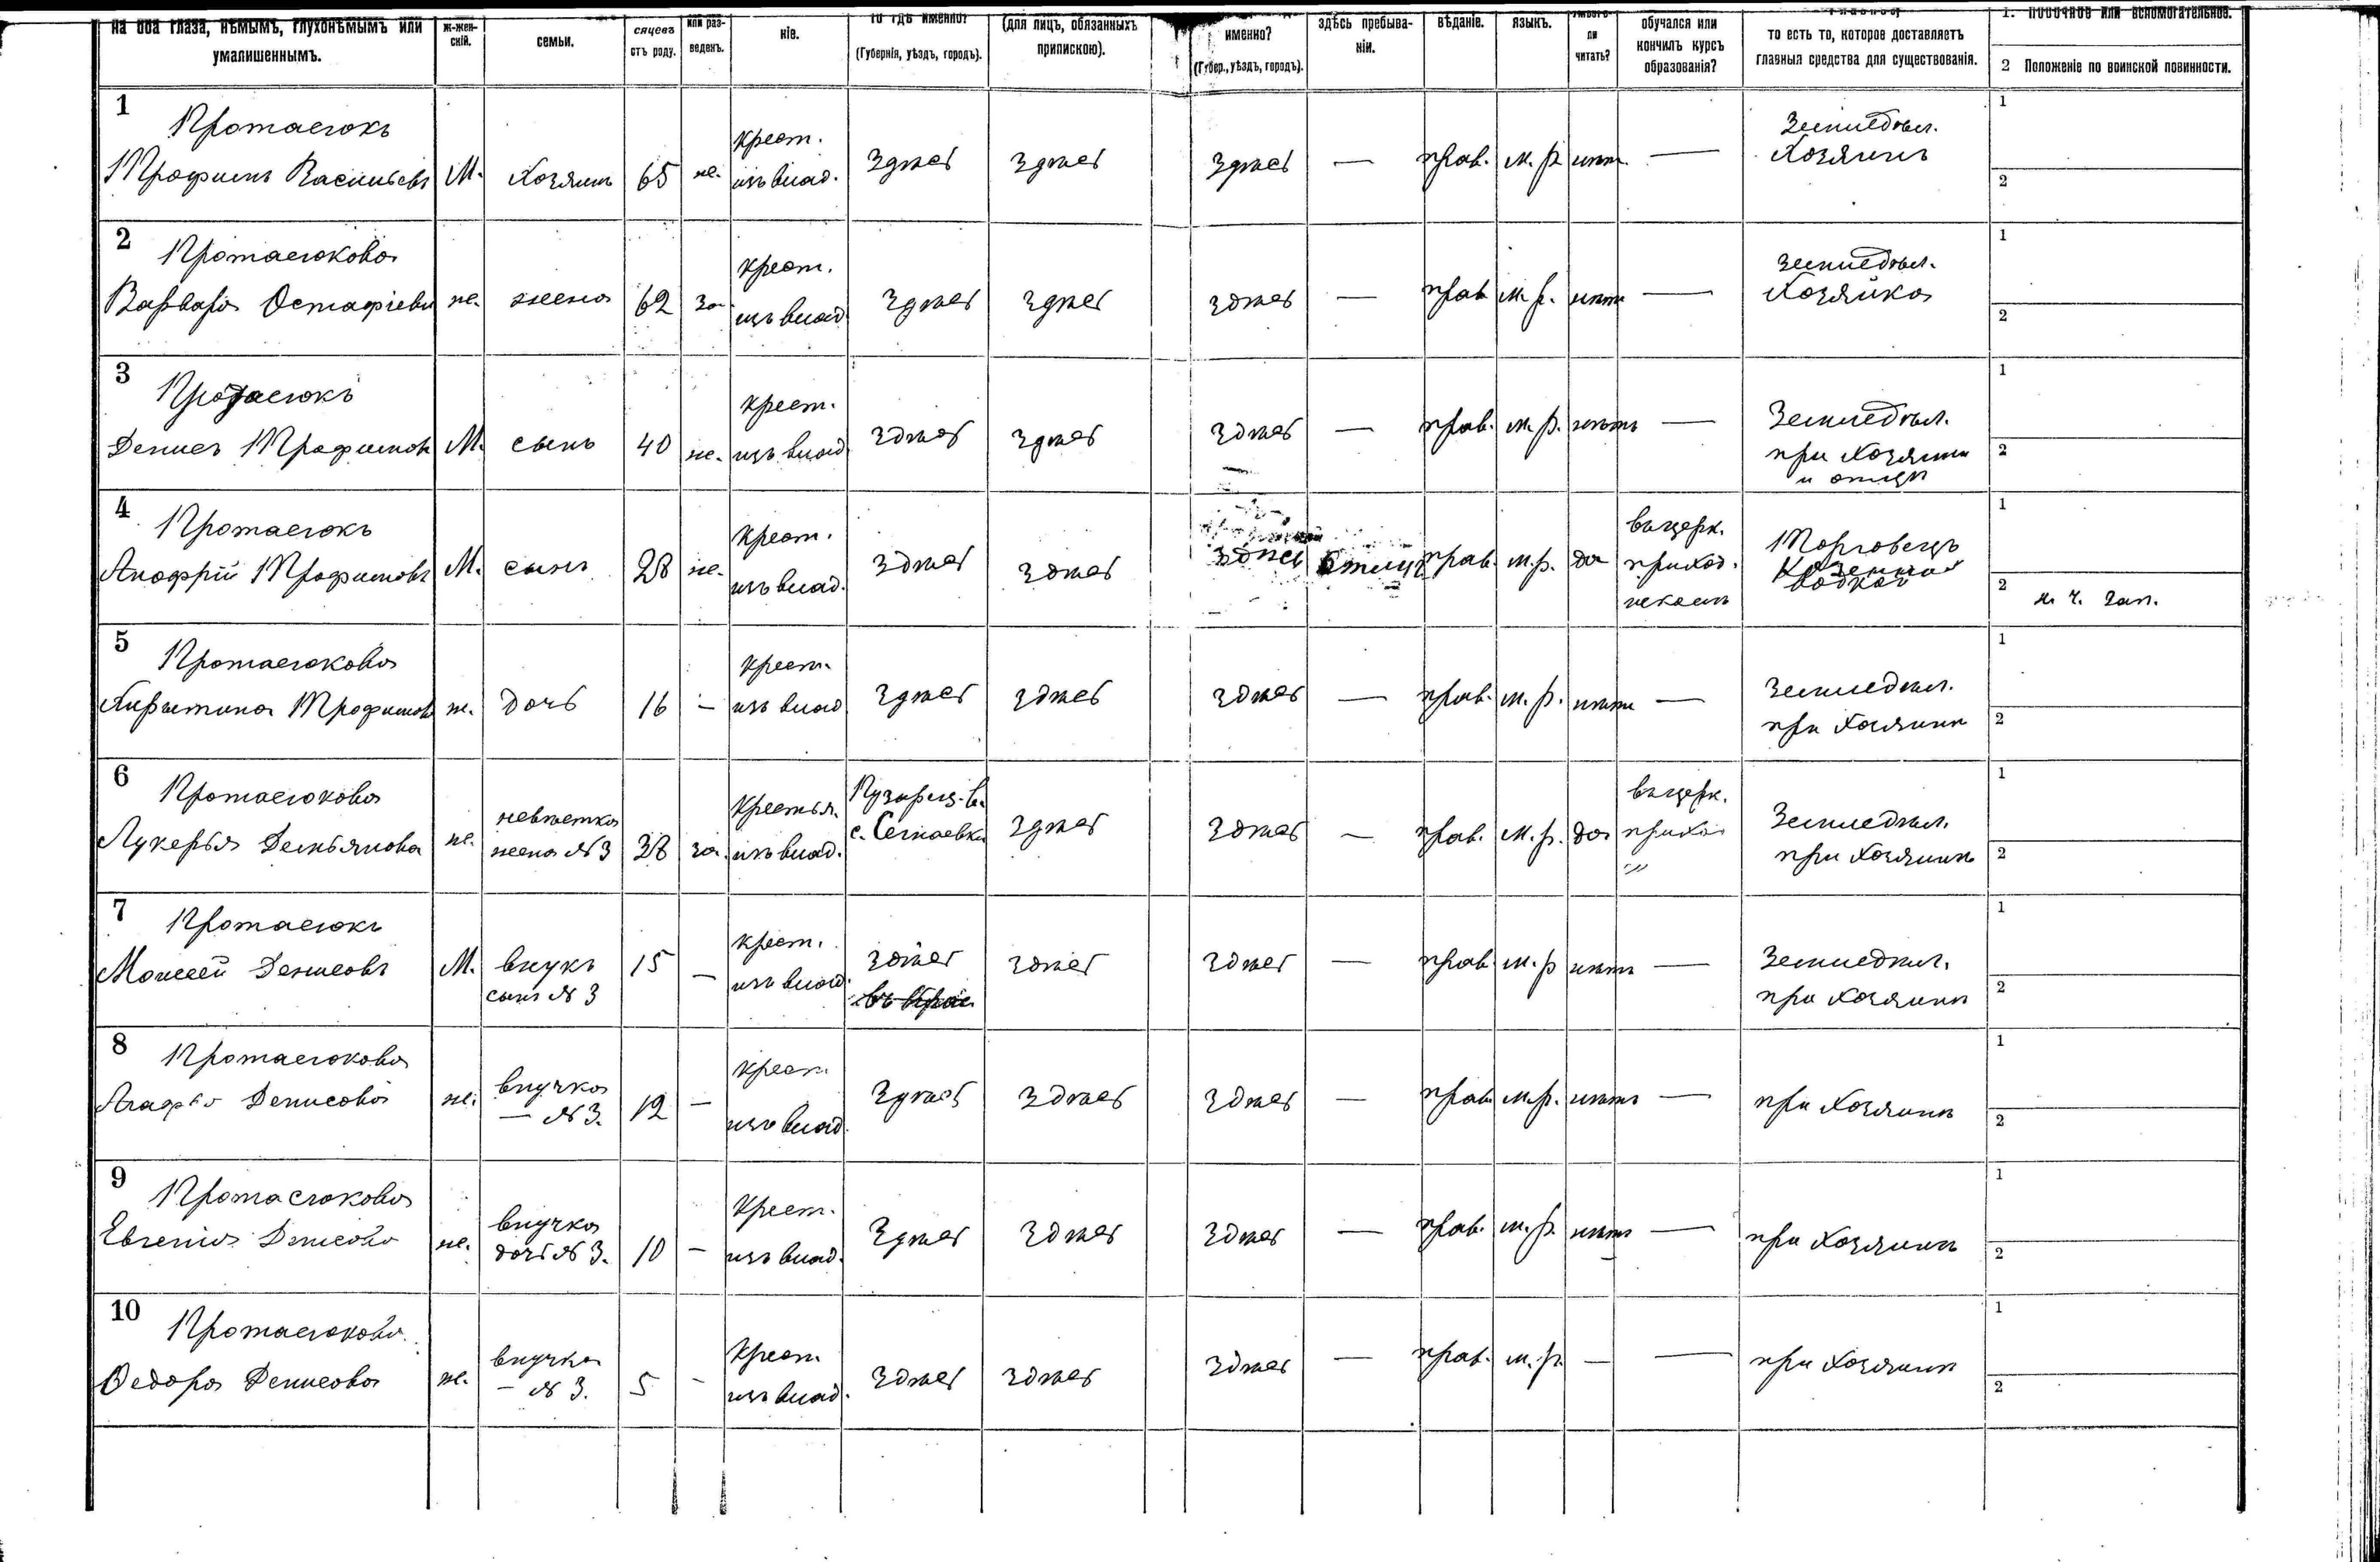 на оба глаза, нѣмымъ, глухонѣмымъ или умалишеннымъ.
ж-женскій.
семьи.
сяцевъ отъ роду.
или разведенъ.
ніе.
то гдѣ именно?
(Губернія, уѣздъ, городъ).
(для лицъ, обязанныхъ припискою).
именно?
(Губер., уѣздъ, городъ).
здѣсь пребываніи.
вѣданіе.
языкъ.
ли читать?
обучался или кончилъ курсъ образованія?
то есть то, которое доставляетъ главныя средства для существованія.
1. Побочное или вспомогательное.
2 Положеніе по воинской повинности.
1
Протасюкъ
Трофимъ Васильевъ
М.
Хозяинъ
65
же.
крест.
изъ влад.
здѣсь
здѣсь
здѣсь
—
прав.
м. р.
нѣтъ
—
Земледѣл.
Хозяинъ
1
2
2
Протасюкова
Варвара Остафіева
ж.
жена
62
за
крест.
изъ влад.
здѣсь
здѣсь
здѣсь
—
прав.
м. р.
нѣтъ
—
земледѣл.
Хозяйка
1
2
3
Протасюкъ
Денисъ Трофимовъ
М.
сынъ
40
же.
крест.
изъ влад.
здѣсь
здѣсь
здѣсь
—
прав.
м. р.
нѣтъ
—
Земледѣл.
при Хозяинѣ
и отцѣ
1
2
4
Протасюкъ
Анофрій Трофимовъ
М.
сынъ
28
же.
крест.
изъ влад.
здѣсь
здѣсь
здѣсь
прав.
м. р.
да
въ церк.
приход.
Торговецъ
Казенной
водкой
1
2 н. ч. зап.
5
Протасюкова
Хирытина Трофимова
ж.
дочь
16
—
крест.
изъ влад.
здѣсь
здѣсь
здѣсь
—
прав.
м. р.
нѣтъ
—
земледѣл.
при Хозяинѣ
1
2
6
Протасюкова
Лукерья Демьянова
ж.
невѣстка
жена № 3
38
за.
Крестья.
изъ влад.
здѣсь
здѣсь
—
прав.
м. р.
да
въ церк.
приход
"
Земледѣл.
при Хозяинѣ
1
2
7
Протасюкъ
Моисей Денисовъ
М.
внукъ
сынъ № 3
15
—
крест.
изъ влад.
здѣсь
здѣсь
здѣсь
—
прав.
м. р.
нѣтъ
—
Земледѣл.
при Хозяинѣ
1
2
8
Протасюкова
Агафья Денисова
ж.
внучка
— № 3.
12
—
крест.
изъ влад.
здѣсь
здѣсь
здѣсь
—
прав.
м. р.
нѣтъ
—
при Хозяинѣ
1
2
9
Протасюкова
Евгенія Денисова
ж.
внучка
дочь № 3.
10
—
крест.
изъ влад.
здѣсь
здѣсь
здѣсь
—
прав.
м. р.
нѣтъ
—
при Хозяинѣ
1
2
10
Протасюкова
Федора Денисова
ж.
внучка
— № 3.
5
-
крест.
изъ влад.
здѣсь
здѣсь
здѣсь
—
прав.
м. р.
—
—
при Хозяинѣ
1
2